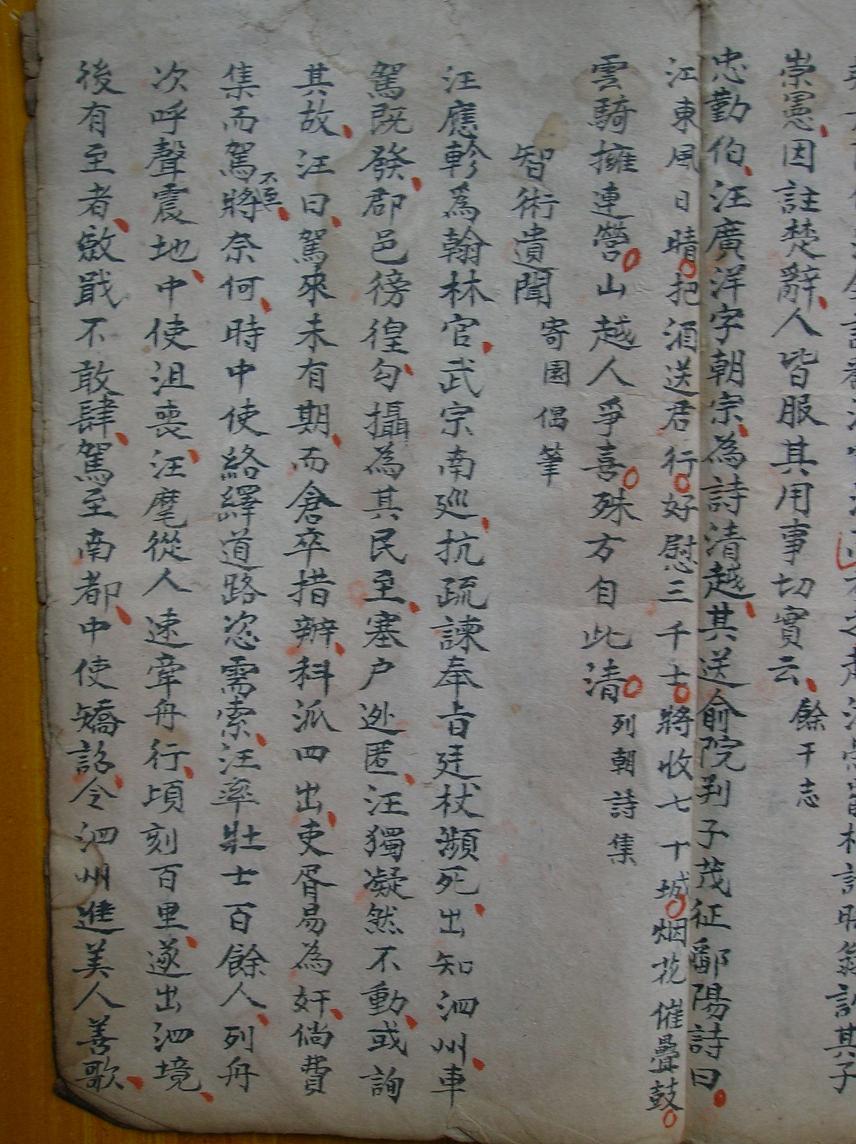 崇憲因註楚辭人皆服其用事切實云餘干志
忠勤伯汪廣洋字朝宗為詩清越其送俞院判子茂征鄱陽詩曰
江東風日晴把酒送君行好慰三千士將收七十城烟花催疊鼓
雲騎擁連營山越人爭喜殊方自此清列朝詩集
智術遺聞寄園偶筆
汪應軫為翰林官武宗南廵抗疏諫奉旨廷杖瀕死出知泗州車
駕既發郡邑徬徨勾攝為其民至塞户迯匿汪獨凝然不動或詢
其故汪曰駕來未有期而倉卒措辦科派四出吏胥易為奸倘費
集而駕將不至奈何時中使絡繹道路恣需索汪率壯士百餘人列舟
次呼聲震地中使沮喪汪麾從人速牽舟行頃刻百里遂出泗境
後有至者斂戢不敢肆駕至南都中使矯詔令泗州進美人善歌